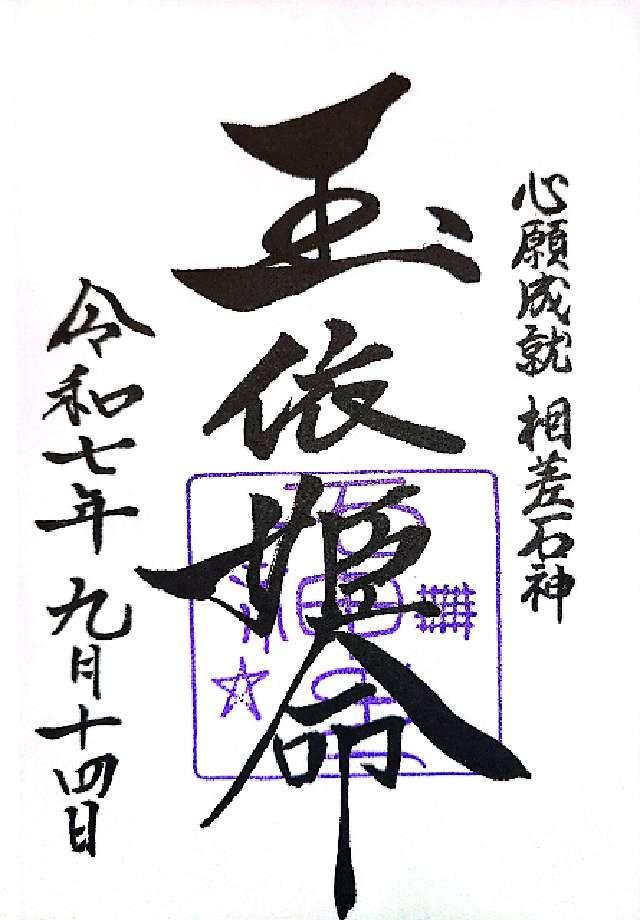 心願成就 相差石神
玉依姫命
令和七年 九月十四日